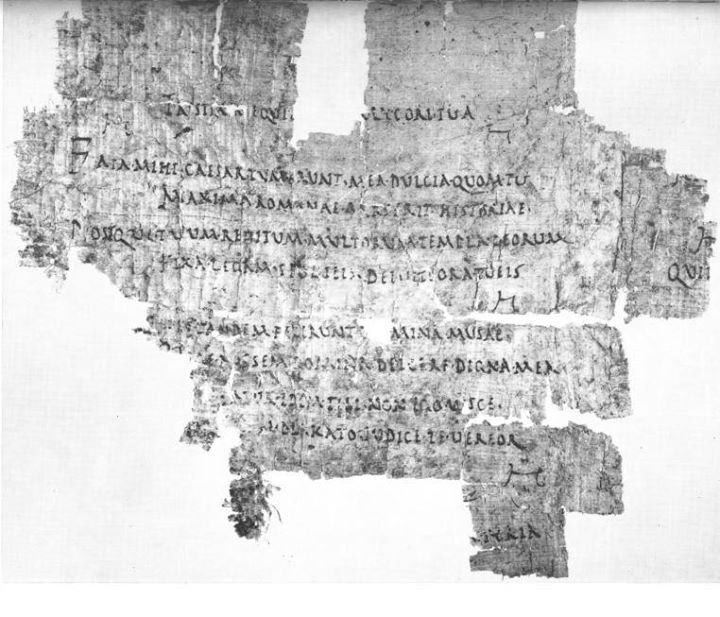 LYCORI·TUA
FATA·MIHI·CAESAR·TUM·ERUNT·MEA·DULCIA·QUOM·TU
MAXIMA·ROMANAE·PARS·ERIT·HISTORIAE
POSTQUE·TUUM·REDITUM·MULTORUM·TEMPLA·DEORUM
FIXA·LEGAM·SPOLIEIS·DEIVITIORA·TUEIS
QUI
TANDEM·FECERUNT MINA·MUSAE
POSSEM·DOMINA·DEICERE·DIGNA·MEA
ATUR·IDEM·TIBI·NON·EGO·VISCE
KATO·IUDICE·TE·VEREOR
TYRIA